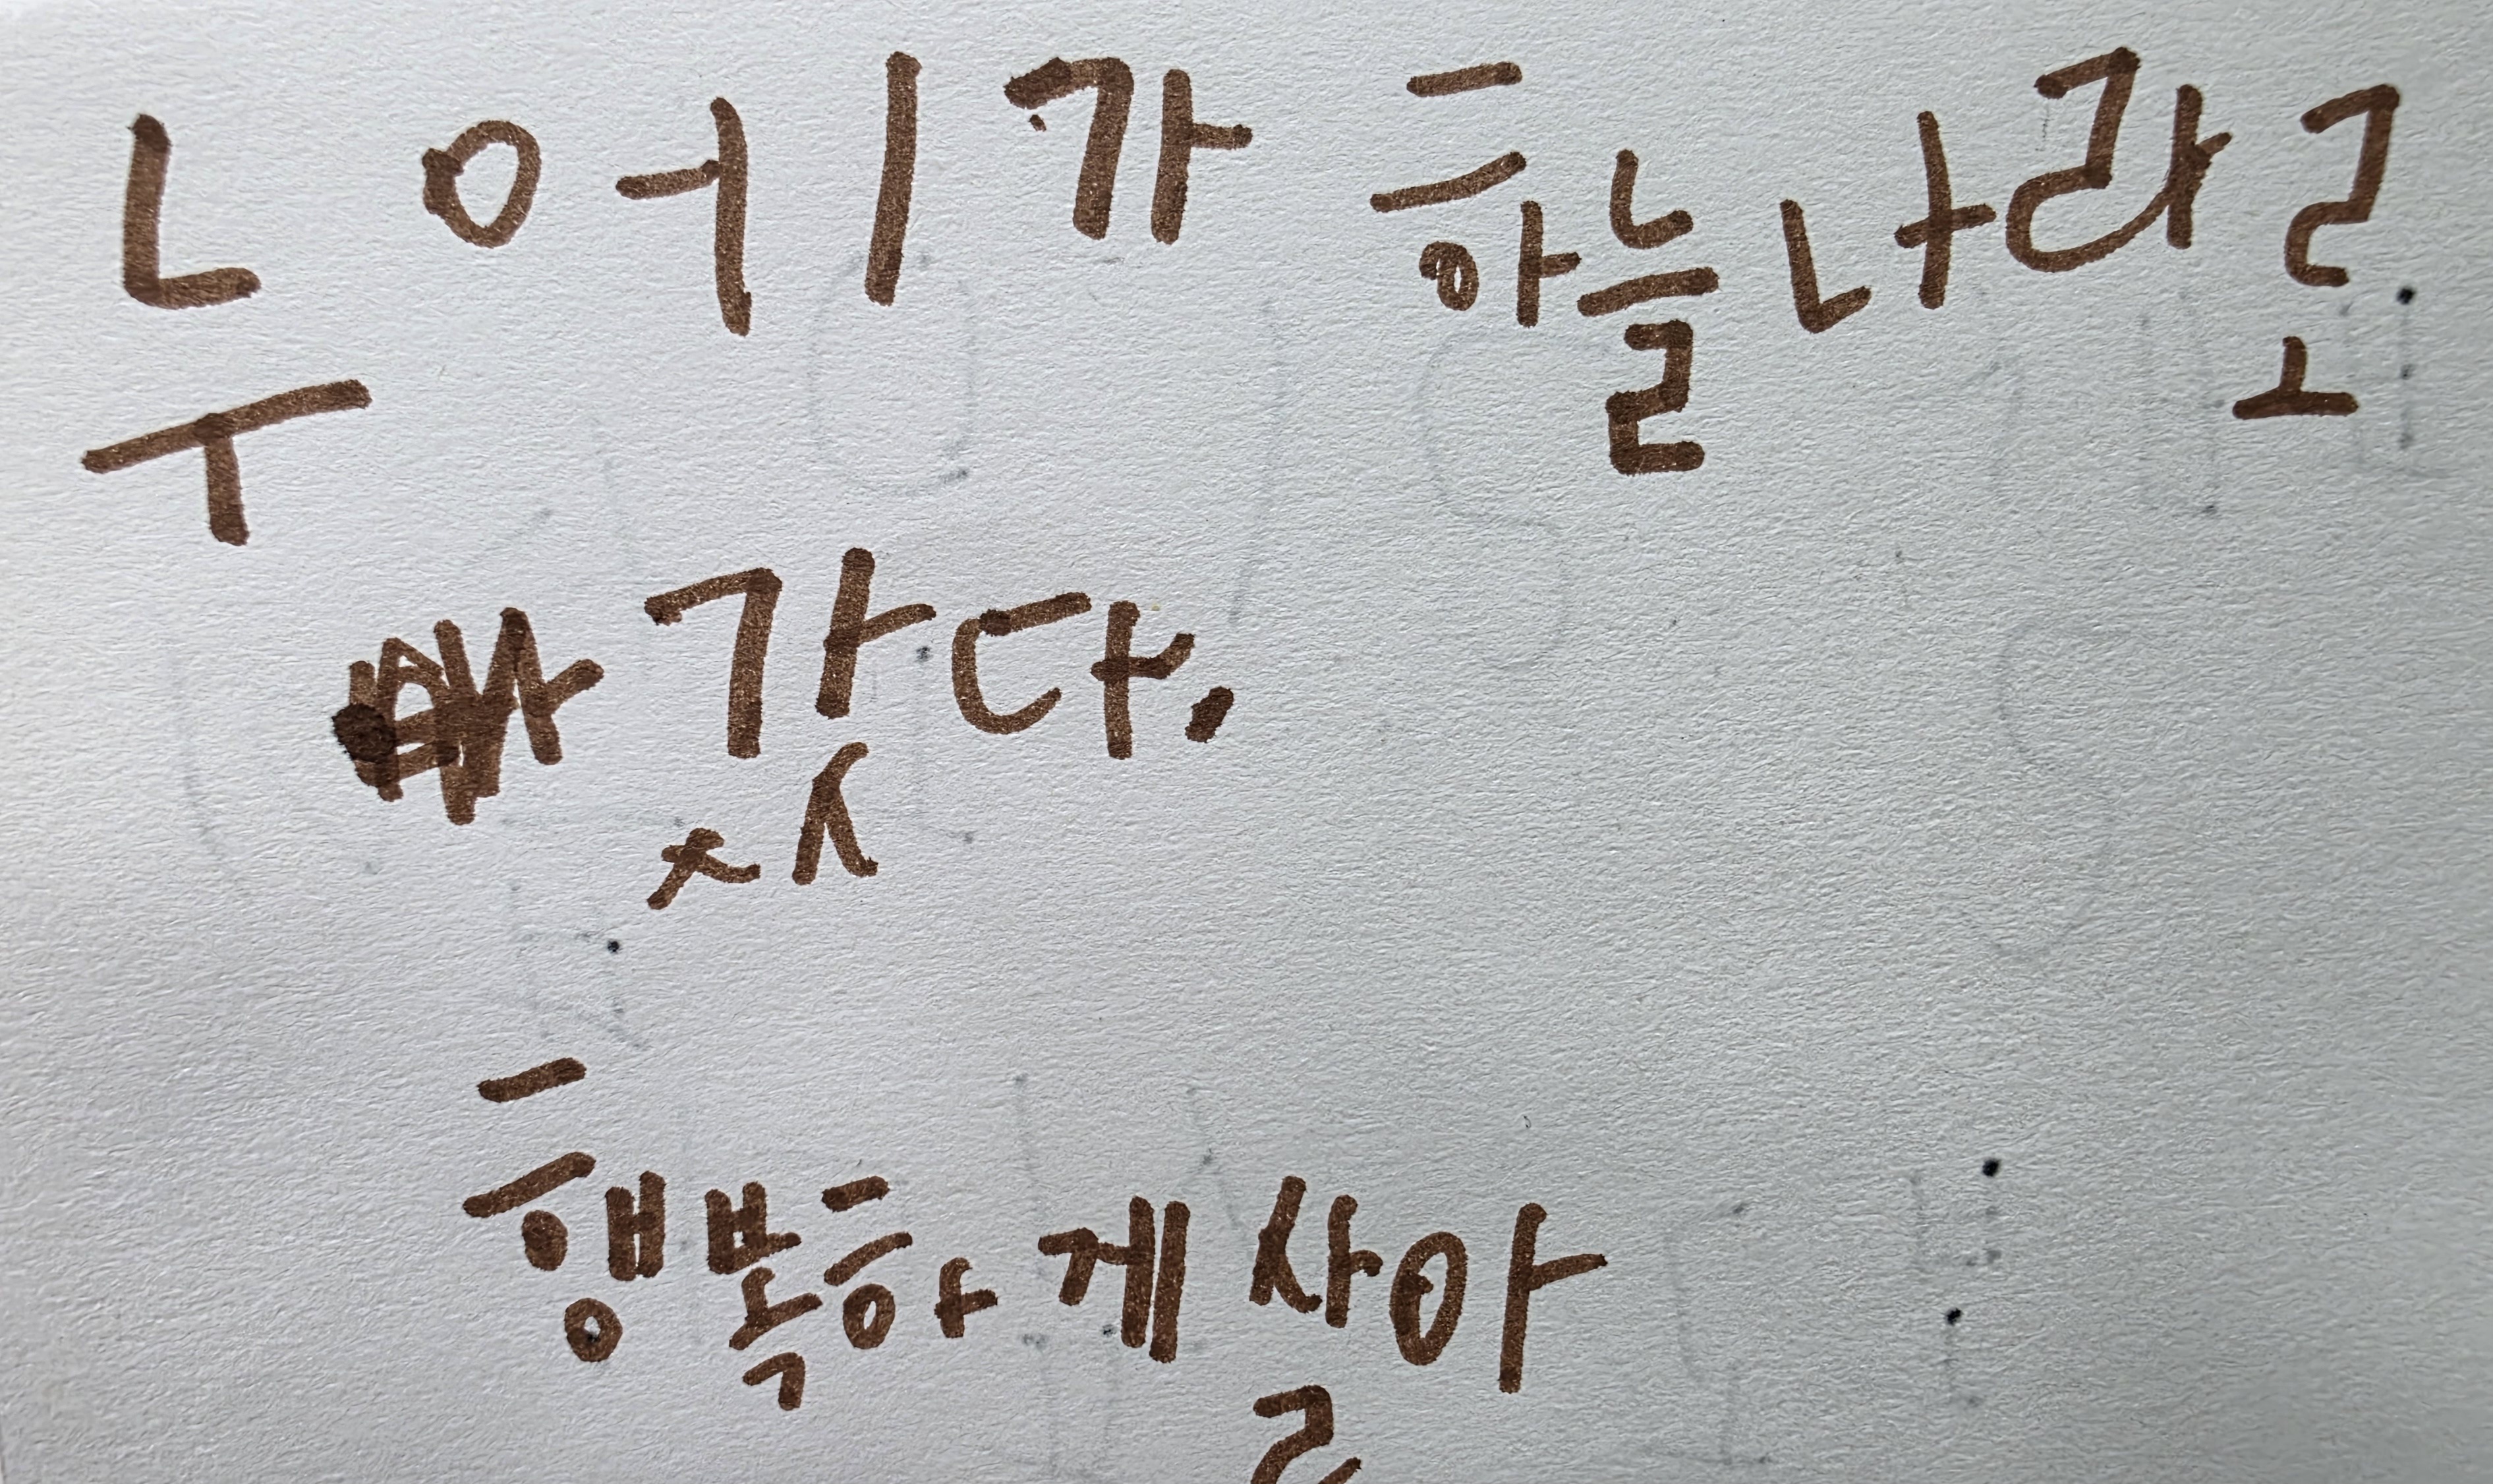 누에가 하늘나라로
갔다.
행복하게 살아